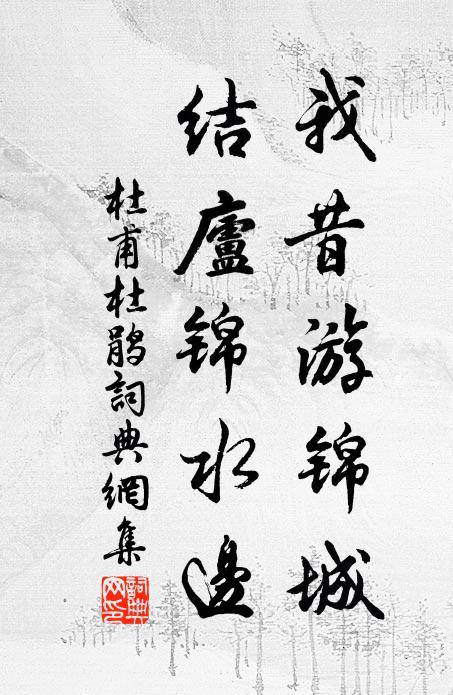 我昔游锦城
结廬锦水邊
杜甫杜鹃詞典網集
詞典网印